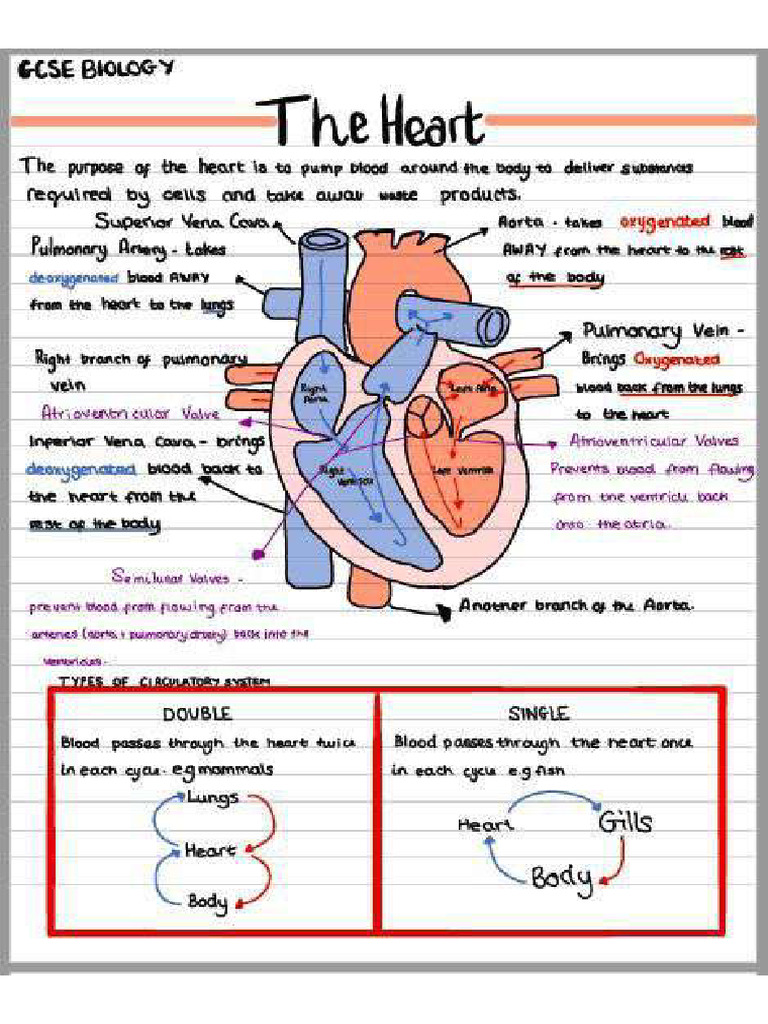 GCSE BIOLOGY
The Heart
The purpose of the heart is to pump blood around the body to deliver substances
required by cells and take away waste products.
Superior Vena Cava
Pulmonary Artery - takes
deoxygenated blood AWAY
from the heart to the lungs
Right branch of pulmonary
vein
Atrioventricular Valve
Inferior Vena Cava - brings
deoxygenated blood back to
the heart from the
rest of the body
Semilunar Valves -
prevent blood from flowing from the
arteries (aorta + pulmonary artery) back into the
ventricles.
Aorta - takes oxygenated blood
AWAY from the heart to the rest
of the body
Pulmonary Vein -
Brings Oxygenated
blood back from the lungs
to the heart
Atrioventricular Valves
Prevents blood from flowing
from the ventricle back
onto the atria.
Another branch of the Aorta.
Right
Left
Right
Ventricle
Left Ventricle
TYPES OF CIRCULATORY SYSTEM
DOUBLE
Blood passes through the heart twice
in each cycle. e.g mammals
Lungs
Heart
Body
SINGLE
Blood passes through the heart once
in each cycle e.g fish
Heart
Gills
Body